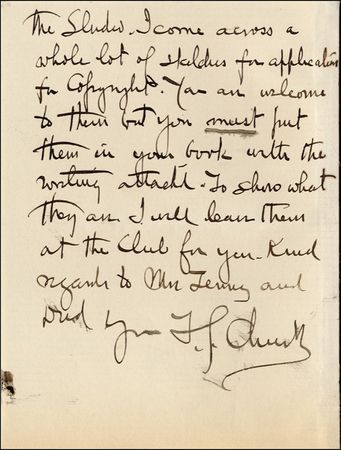 the Studio. I come across a
whole lot of sketches for application
for Copyright. You are welcome
to them but you must put
them in your book with the
writing attach'd. To show what
they are I will leave them
at the Club for you. Kind
regards to Mrs Tenney and
Yrs F. S. Church